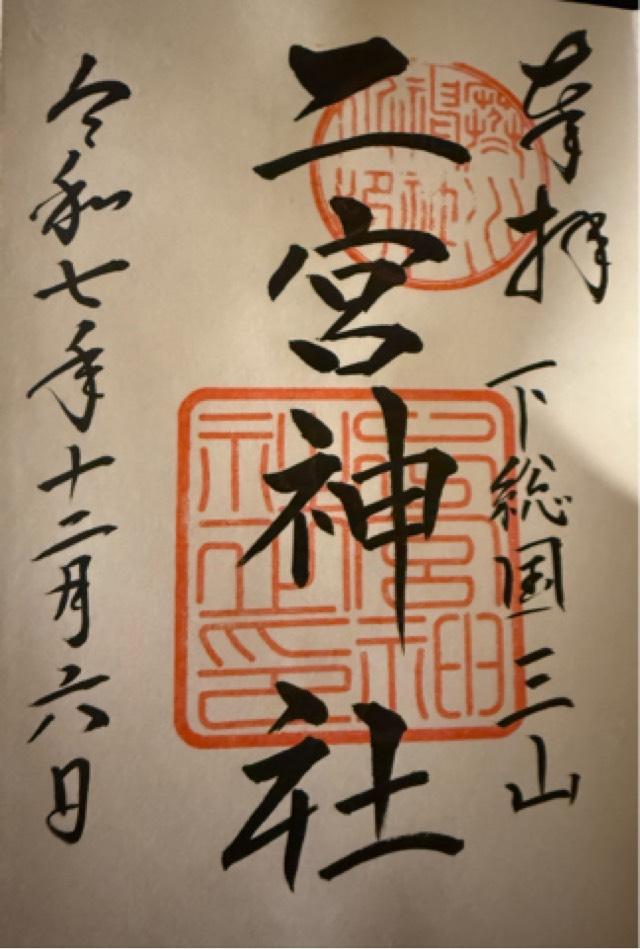 奉拝
下総国三山
二宮神社
令和七年十二月六日